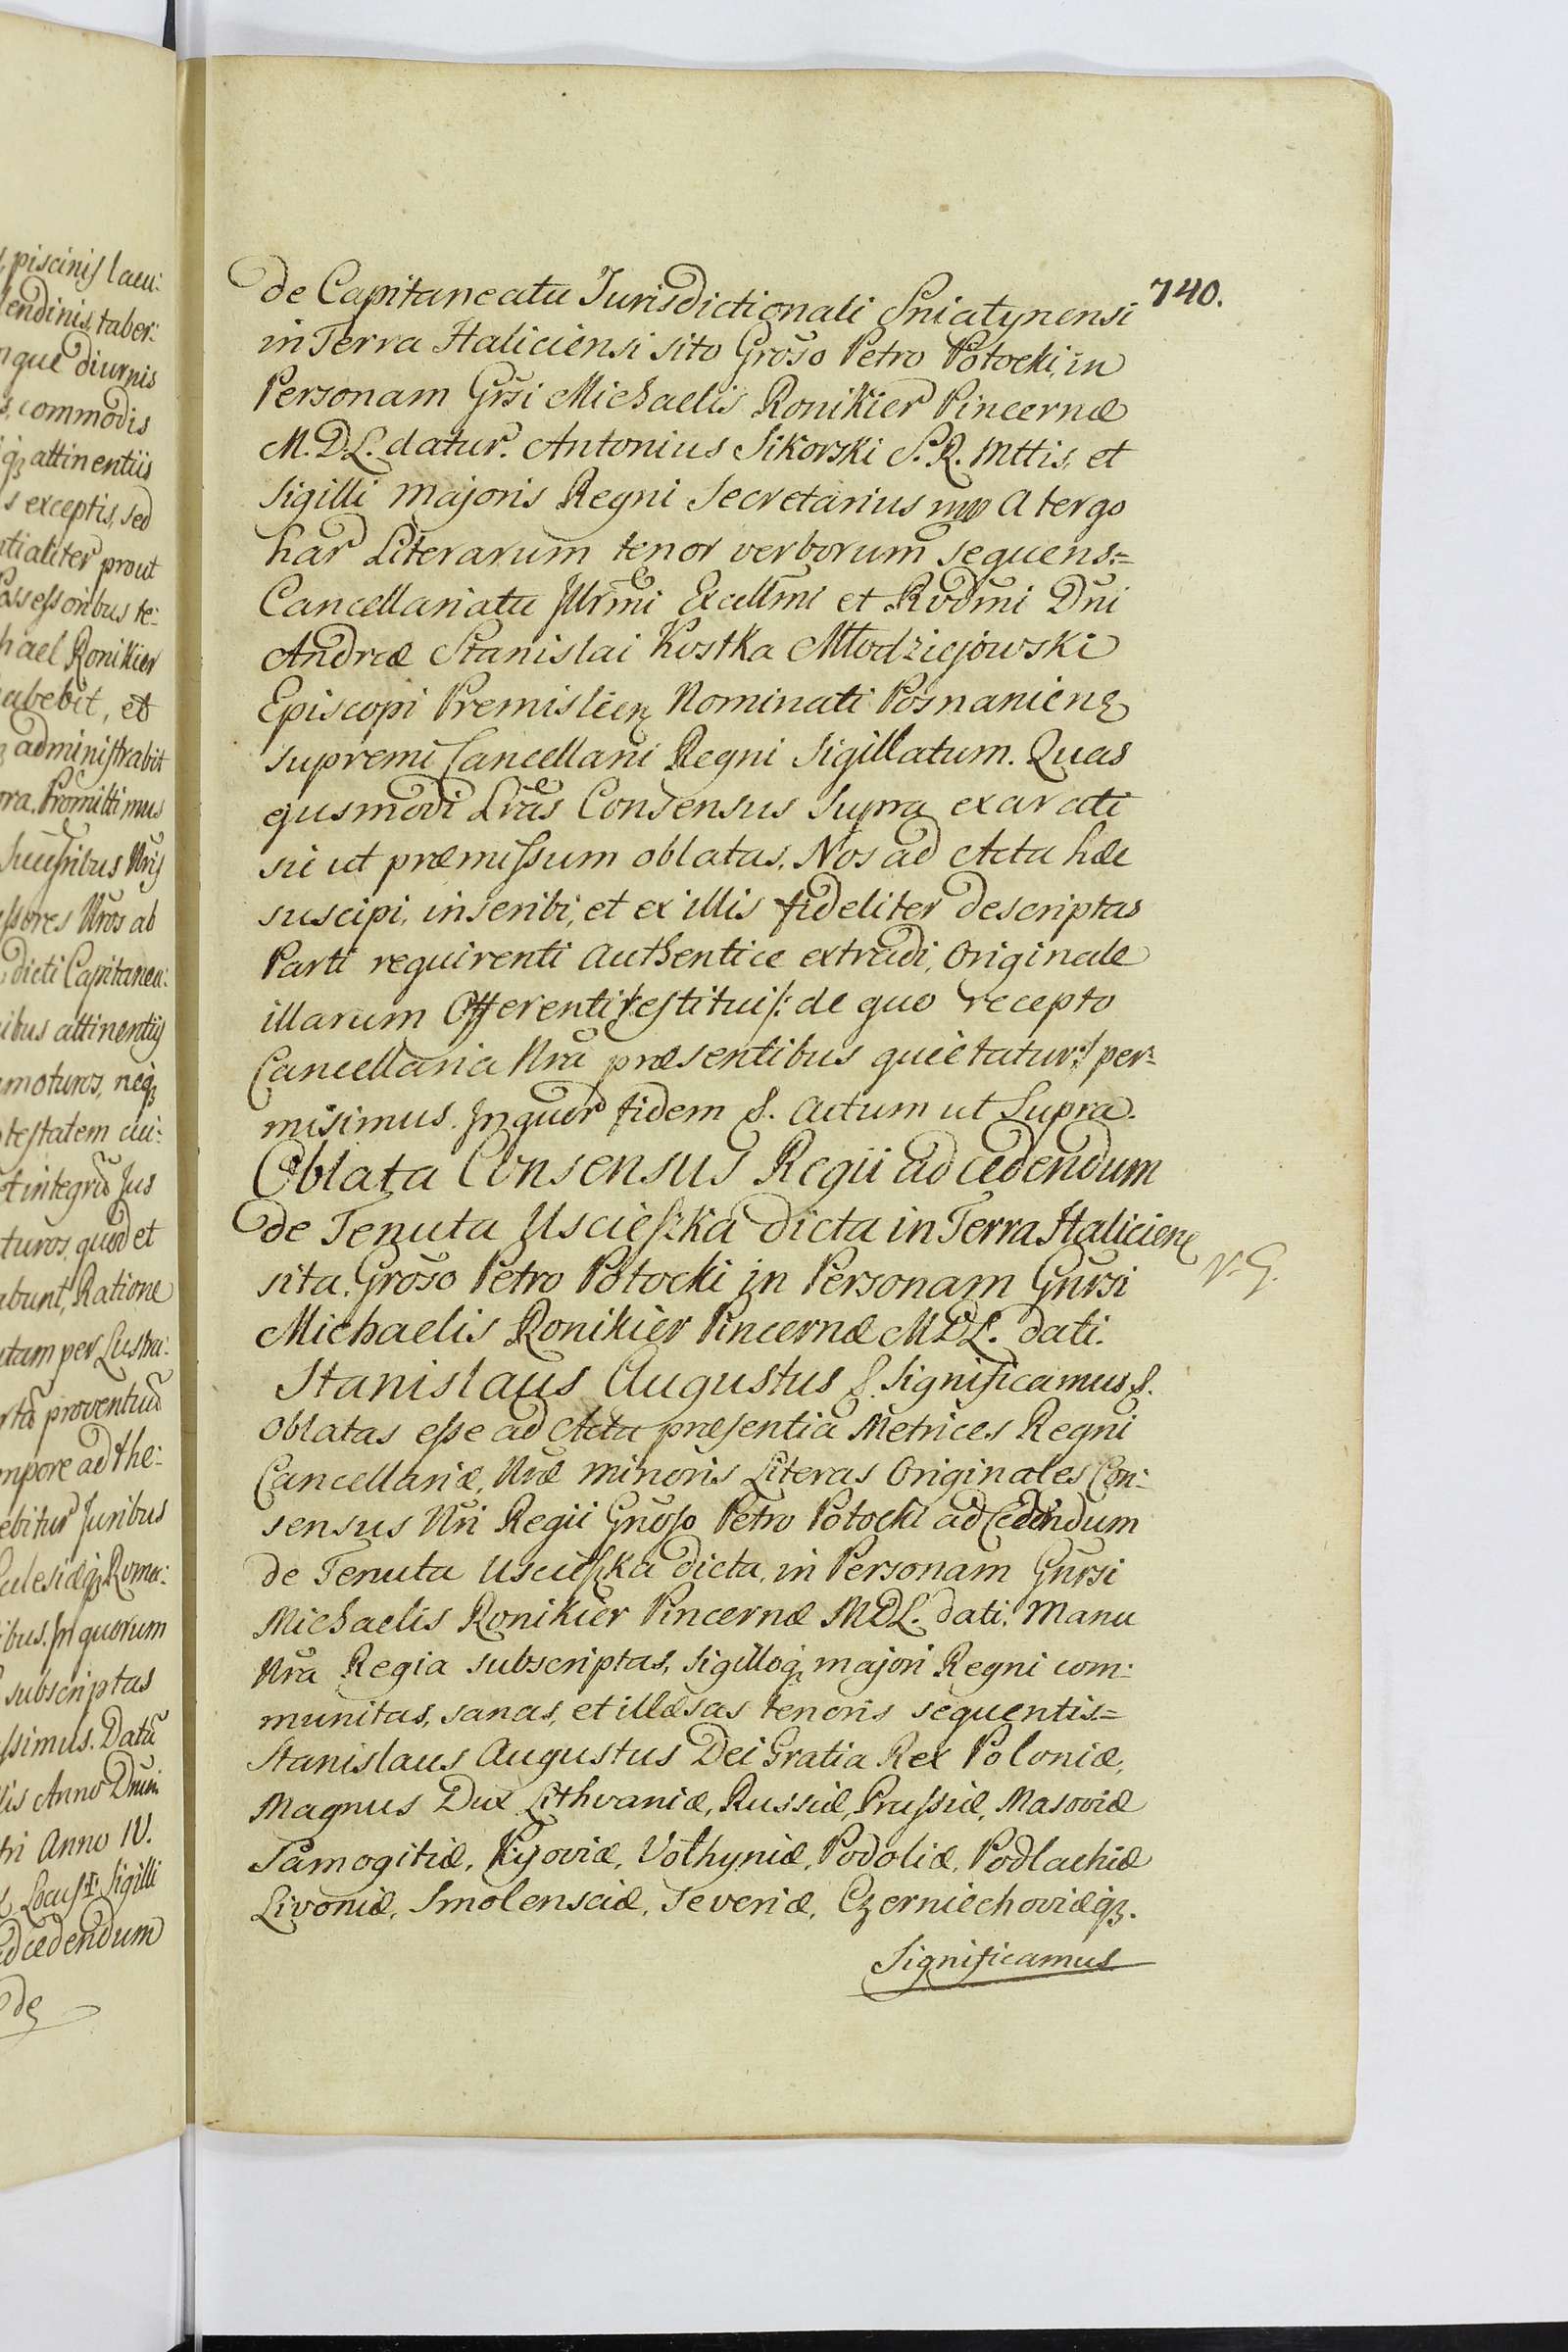 piscinis lacu:
lendinis, taber:
nque diurnis
s, commodis
qȝ attinentiis
s exceptis, sed
ntialiter prout
Possessoribus te:
hael Ronikier
abebit, et
administrabit
ra. Promittimus
Successoribus Nris
ssores Nros ab
dicti Capitanea:
ibus attinentijs
moturos, neqȝ
testatem cui:
t integrũ Jus
turos, quod et
abunt, Ratione
tam per Lustra:
rtã proventuũ
mpore ad the:
ebitur Juribus
Ecclesiæqȝ Roma:
ibus. In quorum
subscriptas
ssimus. Datũ
lis Anno Dñi
tri Anno IV.
Locus + Sigilli
ad cedendum
de
740.
de Capitaneatu Jurisdictionali Sniatynensi
in Terra Haliciensi sito Groso Petro Potocki, in
Personam Grsi Michaelis Ronikier Pincernæ
M. D L. datur. Antonius Sikorski S. R. Mttis, et
Sigilli majoris Regni Secretarius mp A tergo
har Literarum tenor verborum sequens.=
Cancellariatu Illrmi Excellmi et Rvdmi Dni
Andreæ Stanislai Kostka Młodziejowski
Episcopi Premislien Nominati Posnanien
supremi Cancellarii Regni Sigillatum. Quas
ejusmodi Lras Consensus Supra exarati
sic ut præmissum oblatas, Nos ad Acta hæc
suscipi, inscribi, et ex illis fideliter descriptas
Parti requirenti authentice extradi, Originale
illarum Offerenti restitui /: de quo recepto
Cancellaria Nra præsentibus quietatur :/ per:
misimus. In quor fidem &. Actum ut Supra.
Oblata Consensus Regii ad cedendum
de Tenuta Uscieszka dicta in Terra Halicien
sita. Groso Petro Potocki in Personam Gnrsi
Michaelis Ronikier Pincernæ MDL. dati.
V. G.
Stanislaus Augustus &. Significamus &.
Oblatas esse ad Acta præsentia Metrices Regni
Cancellariæ, Nræ minoris Literas Originales Con:
sensus Nri Regii Gnroso Petro Potocki ad Cedendum
de Tenuta Uscieszka dicta, in Personam Gnrsi
Michaelis Ronikier Pincernæ MDL. dati. Manu
Nra Regia subscriptas, sigilloqȝ majori Regni com:
munitas, sanas, et illæsas tenoris sequentis.=
Stanislaus Augustus Dei Gratia Rex Poloniæ,
Magnus Dux Lithvaniæ, Russiæ, Prussiæ, Masoviæ
Samogitiæ, Kijoviæ, Volhyniæ, Podoliæ, Podlachiæ
Livoniæ, Smolensciæ, Severiæ, Czerniechoviæqȝ.
Significamus